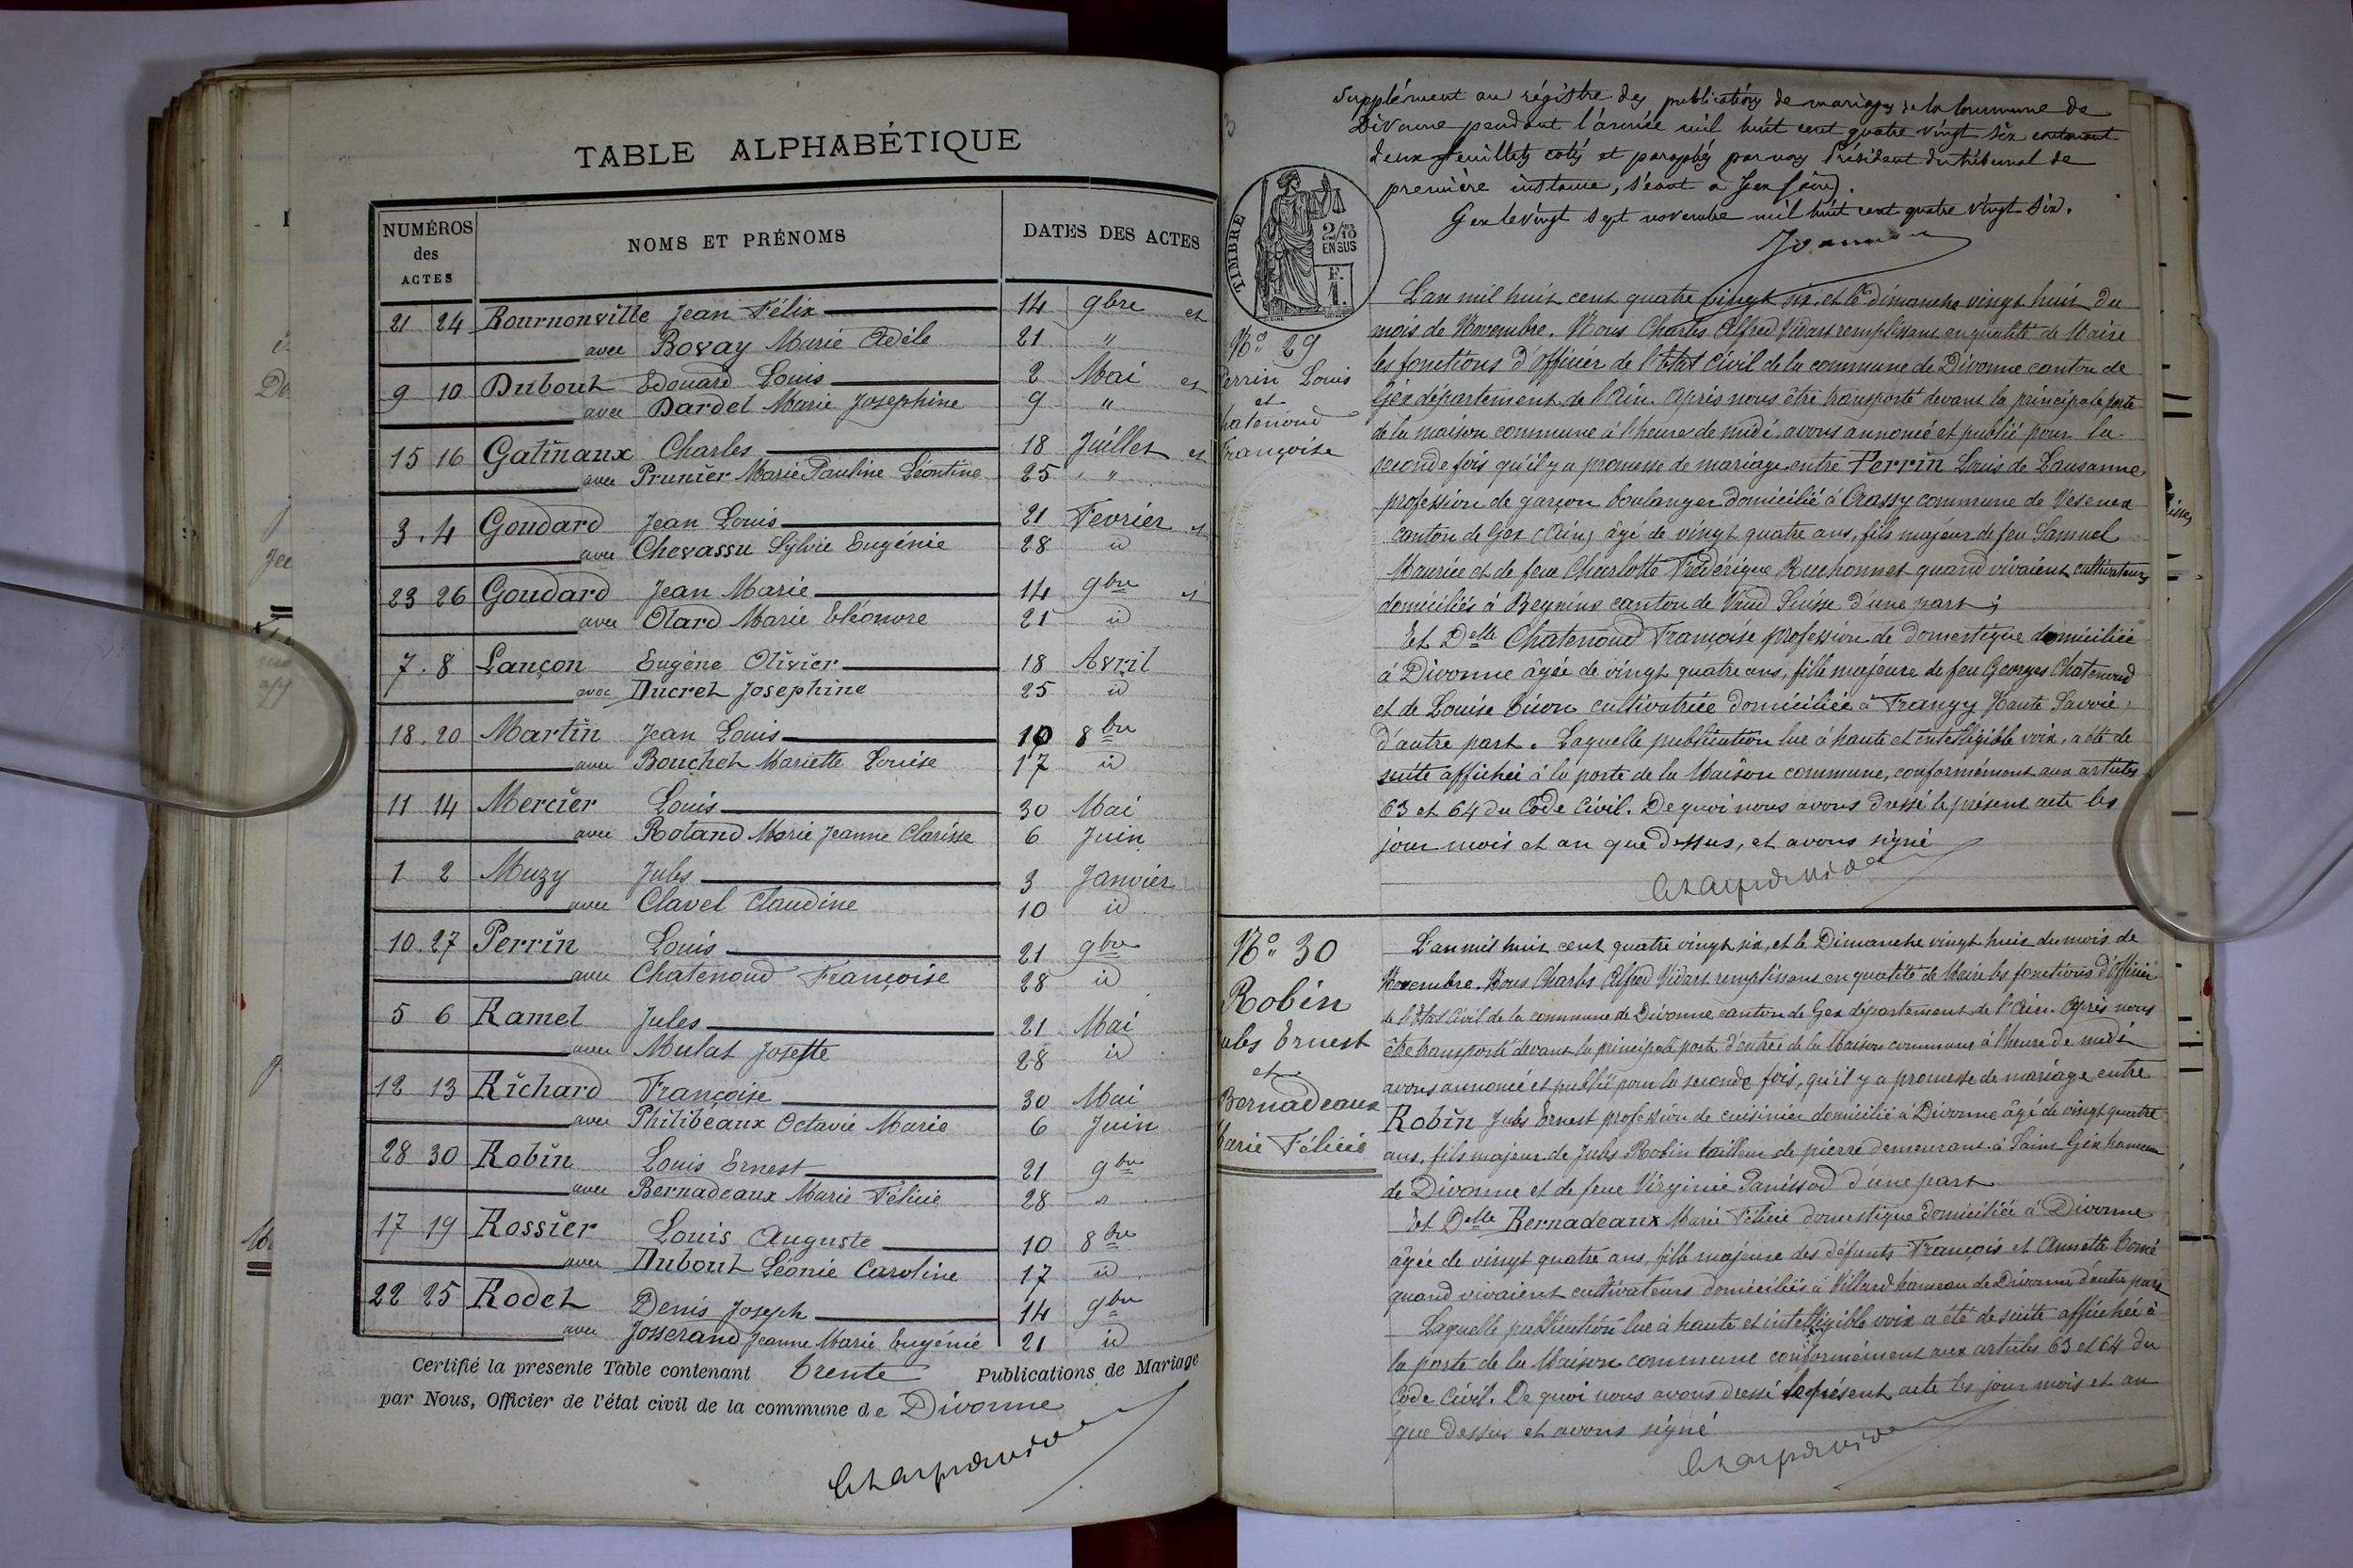 TABLE ALPHABÉTIQUE
NUMÉROS des ACTES
NOMS ET PRÉNOMS
DATES DES ACTES
21 24 Bournonville Jean Félix 14 9bre et
avec Bovay Marie Adèle 21 "
9 10 Dubout Edouard Louis 2 Mai et
avec Dardel Marie Josephine 9 "
15 16 Gatinaux Charles 18 Juillet et
avec Prunier Marie Pauline Léontine 25 "
3. 4 Goudard Jean Louis 21 Fevrier et
avec Chevassu Sylvie Eugénie 28 id
23 26 Goudard Jean Marie 14 9bre et
avec Olard Marie Eléonore 21 id
7. 8 Lançon Eugène Olivier 18 Avril
avec Ducret Josephine 25 id
18. 20 Martin Jean Louis 10 8bre
avec Bouchet Mariette Louise 17 id
11 14 Mercier Louis 30 Mai
avec Roland Marie Jeanne Clarisse 6 Juin
1 2 Muzy Jules 3 Janvier
avec Clavel Claudine 10 id
10. 27 Perrin Louis 21 9bre
avec Chatenoud Françoise 28 id
5 6 Ramel Jules 21 Mai
avec Mulat Josette 28 id
12 13 Richard Françoise 30 Mai
avec Philibeaux Octavie Marie 6 Juin
28 30 Robin Louis Ernest 21 9bre
avec Bernadeaux Marie Félicie 28 "
17 19 Rossier Louis Auguste 10 8bre
avec Dubout Léonie Caroline 17 id
22 25 Rodet Denis Joseph 14 9bre
avec Josserand Jeanne Marie Eugénie 21 id
Certifié la presente Table contenant trente Publications de Mariage
par Nous, Officier de l'état civil de la commune de Divonne
Supplément au régistre des publications de mariages de la Commune de
Divonne pendant l'année mil huit cent quatre vingt six contenant
deux feuillets cotés et paraphés par nous Président du tribunal de
première instance, séant à Gex (Ain).
Gex le vingt sept novembre mil huit cent quatre vingt six.
TIMBRE
2/10 EN SUS
F. 1.
No 29
Perrin Louis
et
Chatenoud
Françoise
L'an mil huit cent quatre vingt six, et le dimanche vingt huit du
mois de Novembre. Nous Charles Alfred Vidart remplissant en qualité de Maire
les fonctions d'officier de l'Etat Civil de la commune de Divonne canton de
Gex département de l'Ain. Après nous être transporté devant la principale porte
de la maison commune à l'heure de midi avons annoncé et publié pour la
seconde fois qu'il y a promesse de mariage entre Perrin Louis de Lausanne
profession de garçon boulanger domicilié à Crassy commune de Vesenex
canton de Gex (Ain) âgé de vingt quatre ans, fils majeur de feu Samuel
Maurice et de feue Charlotte Frédérique Ruchonnet quand vivaient cultivateurs
domiciliés à Begnins canton de Vaud Suisse d'une part ;
Et Delle Chatenoud Françoise profession de domestique domiciliée
à Divonne âgée de vingt quatre ans, fille majeure de feu Georges Chatenoud
et de Louise cultivatrice domiciliée à Frangy Haute Savoie,
d'autre part. Laquelle publication lue à haute et intelligible voix, a été de
suite affichée à la porte de la Maison commune, conformément aux articles
63 et 64 du Code Civil. De quoi nous avons dressé le présent acte les
jour mois et an que dessus, et avons signé
No 30
Robin
Jules Ernest
et
Bernadeaux
Marie Félicie
L'an mil huit cent quatre vingt six, et le Dimanche vingt huit du mois de
Novembre. Nous Charles Alfred Vidart remplissant en qualité de Maire les fonctions d'officier
de l'Etat Civil de la commune de Divonne canton de Gex département de l'Ain. Après nous
être transporté devant la principale porte d'entrée de la Maison commune à l'heure de midi
avons annoncé et publié pour la seconde fois, qu'il y a promesse de mariage entre
Robin Jules Ernest profession de cuisinier domicilié à Divonne âgé de vingt quatre
ans, fils majeur de Jules Robin tailleur de pierre demeurant à Saint Gix hameau
de Divonne et de feue Virginie Panissod d'une part
Et Delle Bernadeaux Marie Félicie domestique domiciliée à Divonne
âgée de vingt quatre ans, fille majeure des défunts François et Annette
quand vivaient cultivateurs domiciliés à Villard hameau de Divonne d'autre part
Laquelle publication lue à haute et intelligible voix a été de suite affichée à
la porte de la Maison commune conformément aux articles 63 et 64 du
Code Civil. De quoi nous avons dressé le présent acte les jour mois et an
que dessus et avons signé